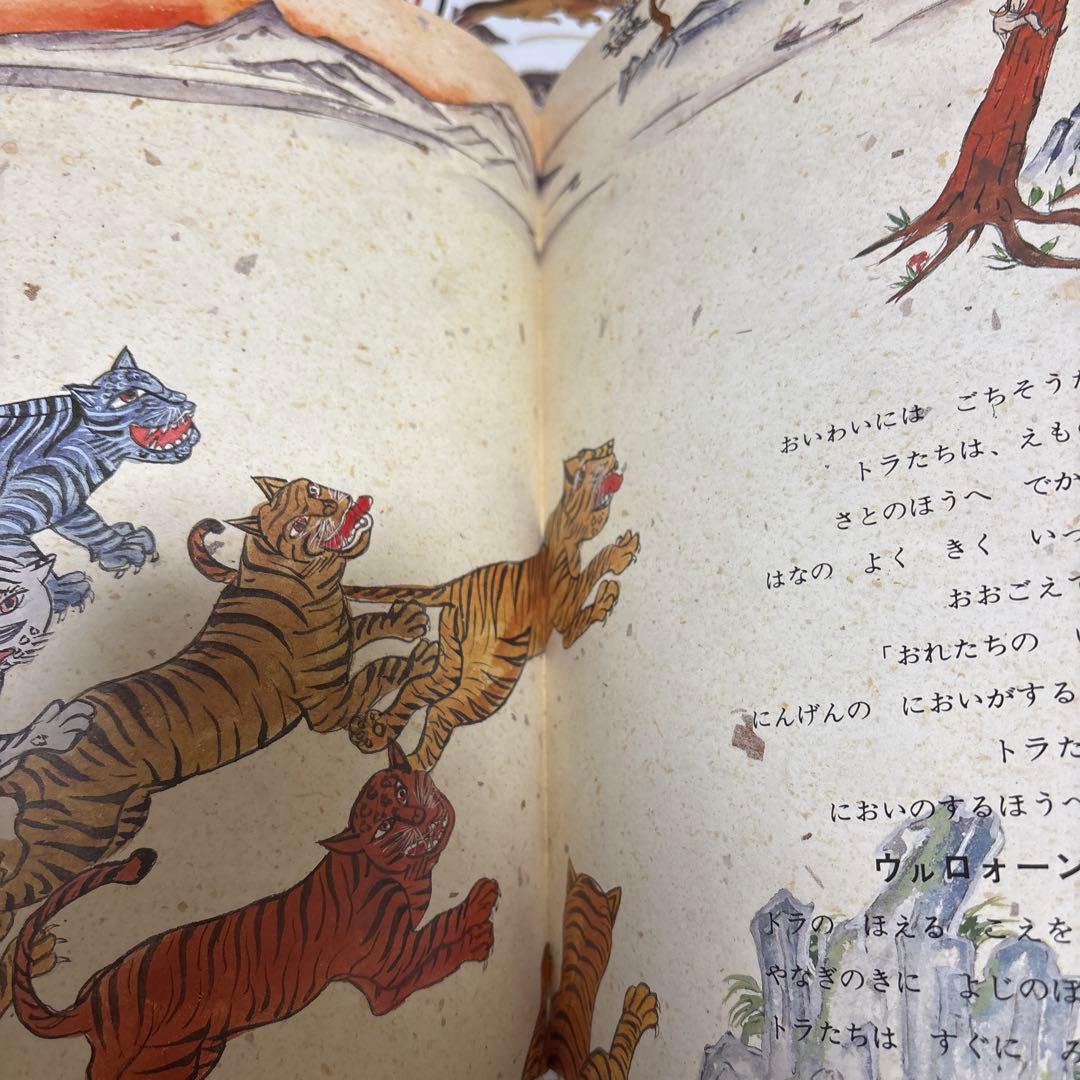 おいわいには ごちそうが
トラたちは、えもの
さとのほうへ でか
はなの よく きく いっ
おおごえで
「おれたちの
にんげんの においがする
トラた
においのするほうへ
ウルロォーン
トラの ほえる こえを
やなぎのきに よじのぼ
トラたちは すぐに み